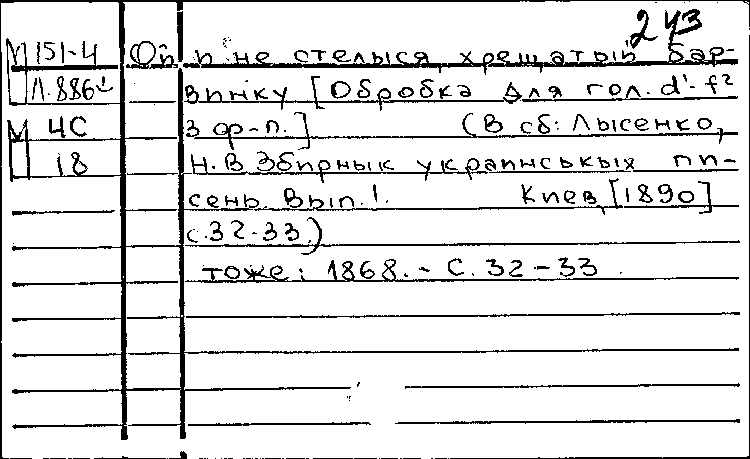 243
М 151-4 Ой, не стелыся, хрещатый бар-
Л.886 винку [Обробка для гол. d'-f²
М 4С з ф-п.] (В сб: Лысенко,
18 Н.В Збирнык украинськых пи-
сень. Вып. 1. Киев, [1890]
с.32-33.)
тоже: 1868. - С. 32-33.